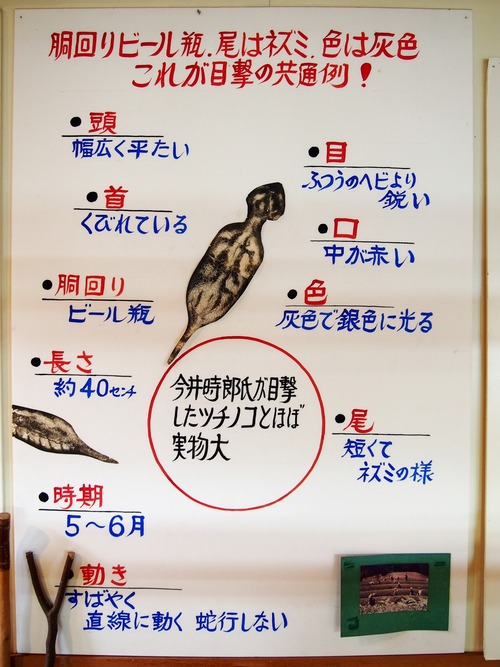 胴回りビール瓶.尾はネズミ.色は灰色
これが目撃の共通例!
●頭
幅広く平たい
●首
くびれている
●胴回り
ビール瓶
●長さ
約40センチ
●時期
5〜6月
●動き
すばやく
直線に動く 蛇行しない
●目
ふつうのヘビより
鋭い
●口
中が赤い
●色
灰色で銀色に光る
今井時郎氏が目撃
したツチノコとほぼ
実物大
●尾
短くて
ネズミの様